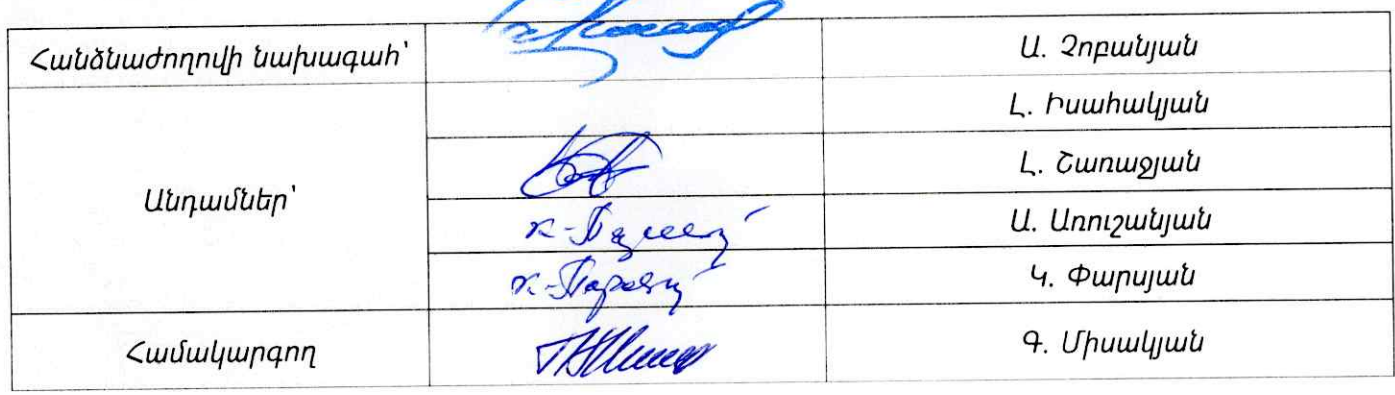 Հանձնաժողովի նախագահ՝ Ա. Չոբանյան
Լ. Իսահակյան
Լ. Շառաջյան
Անդամներ՝
Ա. Առուշանյան
Կ. Փարսյան
Համակարգող Գ. Միսակյան